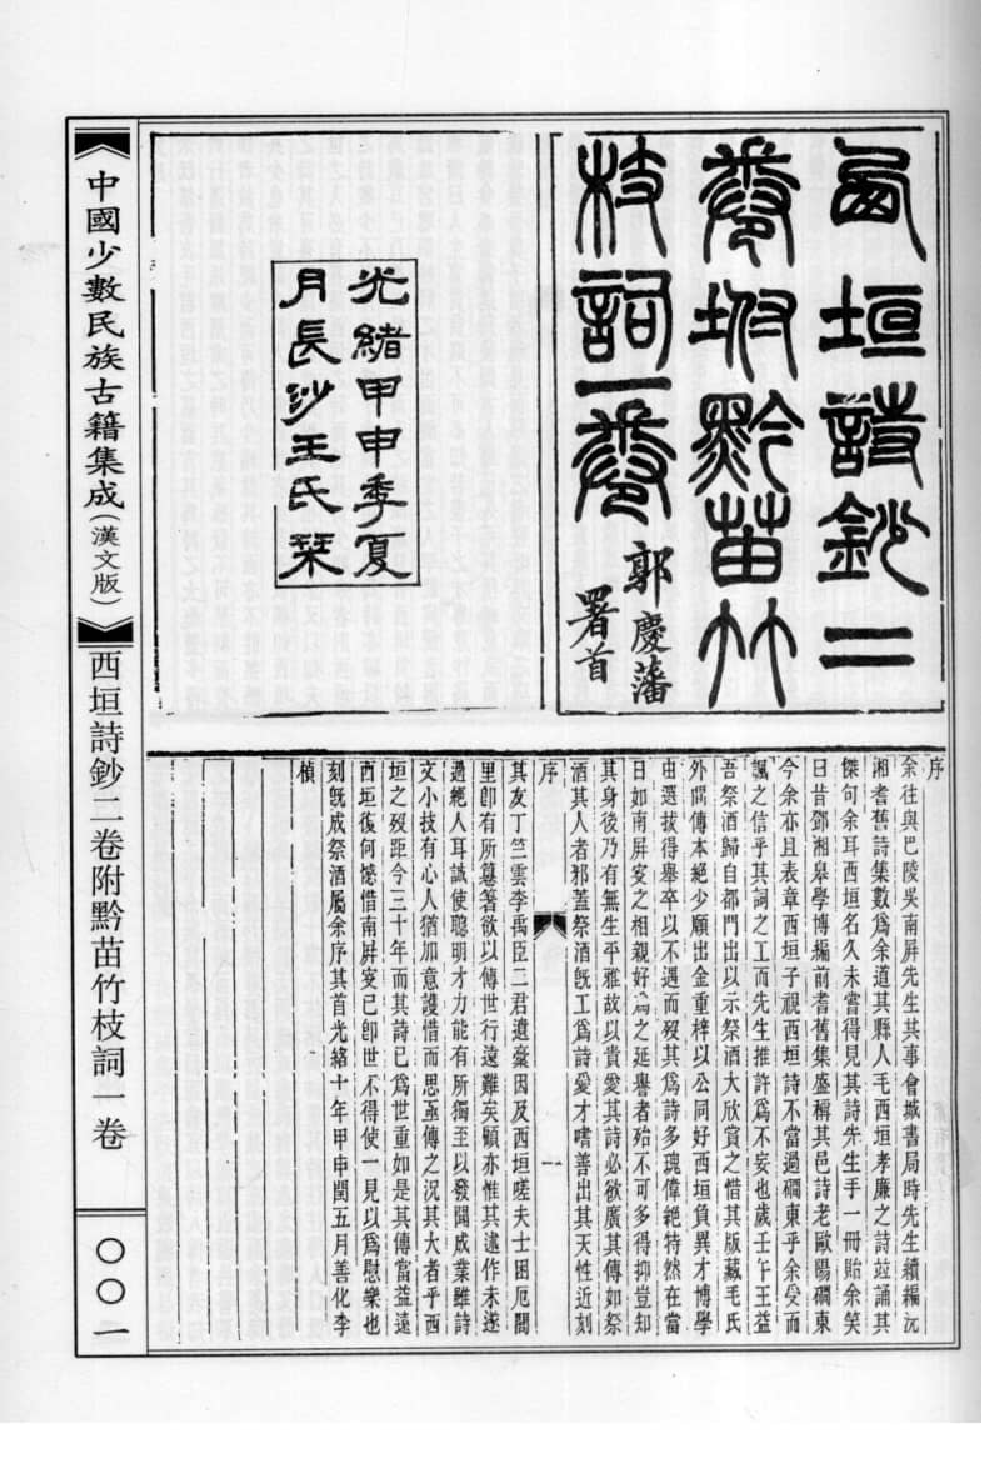 西垣詩鈔二
卷坿黔苗竹
枝詞一卷
郭慶藩
署首
光緒甲申季夏
月長沙王氏栞
序
余往與巴陵吳南屏先生共事會城書局時先生續編沅
湘耆舊詩集數爲余道其縣人毛西垣孝廉之詩竝誦其
傑句余耳西垣名久未嘗得見其詩先生手一冊貽余笑
曰昔鄧湘皋學博編前耆舊集盛稱其邑詩老歐陽磵東
今余亦且表章西垣子視西垣詩不當過磵東乎余受而
諷之信乎其詞之工而先生推許爲不妄也歲壬午王益
吾祭酒歸自都門出以示祭酒大欣賞之惜其版藏毛氏
外間傳本絕少願出金重梓以公同好西垣負異才博學
由選拔得舉卒以不遇而歿其爲詩多瑰偉絕特然在當
日如南屏妄之相親好爲之延譽者殆不可多得抑豈知
其身後乃有無生平雅故以貴愛其詩必欲廣其傳如祭
酒其人者邪蓋祭酒既工爲詩愛才嗜善出其天性近刻
序
一
其友丁竺雲李禹臣二君遺稾因及西垣嗟夫士困厄閭
里卽有所纂著欲以傳世行遠難矣顧亦惟其述作未遂
過絕人耳誠使聰明才力能有所獨至以發聞成業雖詩
文小技有心人猶加意護惜而思亟傳之況其大者乎西
垣之歿距今三十年而其詩已爲世重如是其傳當益遠
西垣復何憾惜南屏妄已卽世不得使一見以爲慰樂也
刻既成祭酒屬余序其首光緒十年甲申閏五月善化李
楨
中國少數民族古籍集成（漢文版）
西垣詩鈔二卷附黔苗竹枝詞一卷
〇〇一